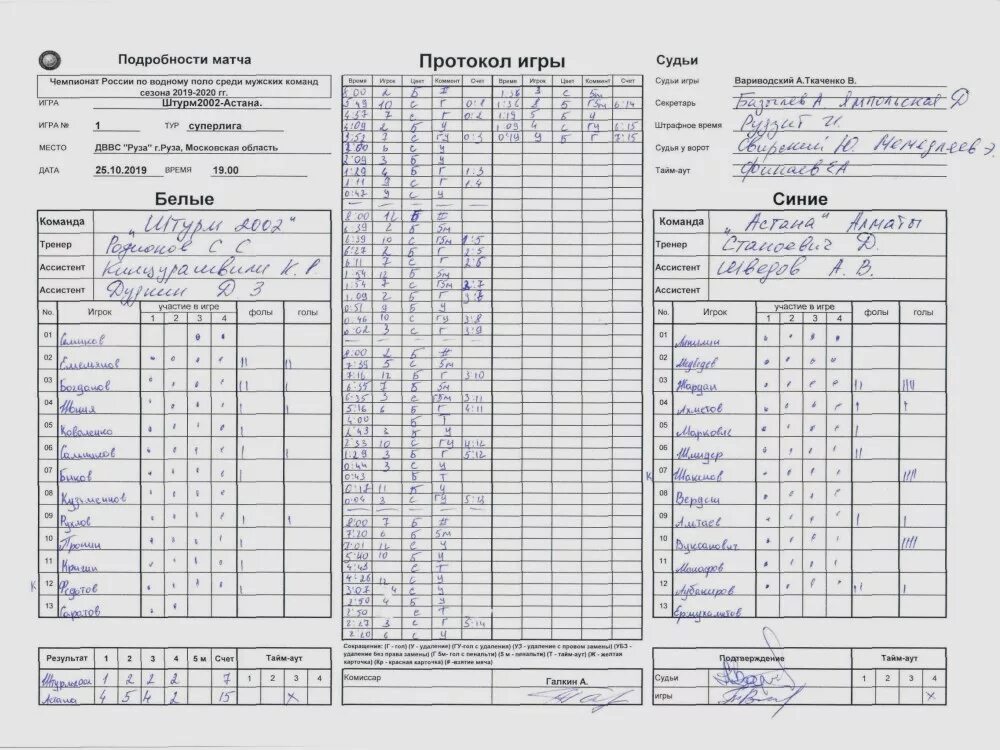 Подробности матча
Чемпионат России по водному поло среди мужских команд
сезона 2019-2020 гг.
ИГРА Штурм2002-Астана.
ИГРА № 1 ТУР суперлига
МЕСТО ДВВС "Руза" г.Руза, Московская область
ДАТА 25.10.2019 ВРЕМЯ 19.00
Белые
Команда "Штурм 2002"
Тренер Родионов С С
Ассистент К. Р
Ассистент Д З
No. Игрок участие в игре фолы голы
1 2 3 4
01
02 Емельянов
03 Богданов
04
05 Коваленко
06
07 Быков
08 Кузьменков
09 Рухлов
10 Пронин
11
К 12 Федотов
13 Саратов
Результат 1 2 3 4 5 м Счет Тайм-аут
1 2 3 4
1 2 2 2 7
4 5 4 2 15 X
Протокол игры
Время Игрок Цвет Коммент Счет Время Игрок Цвет Коммент Счет
8:00 2 Б 1:36 3 С 5м
5:49 10 С Г 0:1 1:36 8 Б Г5м 6:14
4:37 7 С Г 0:2 1:19 5 Б У
4:09 2 Б У 1:09 4 С ГУ 6:15
3:53 2 С ГУ 0:3 0:49 9 Б Г 7:15
6 С У
2:09 3 Б У
1:29 4 Б Г 1:3
1:11 9 С Г 1:4
0:42 9 С У
8:00 12 Б #
6:39 2 Б 5м
6:39 10 С Г5м 1:5
6:27 2 Б Г 2:5
6:11 7 С Г 2:6
1:54 12 Б 5м
1:54 7 С Г5м 2:7
1:09 2 Б Г 3:7
0:51 9 Б У
0:46 10 С ГУ 3:8
0:02 3 С Г 3:9
8:00 2 Б #
7:39 5 С 5м
7:16 12 Б Г 3:10
6:35 7 Б 5м
6:35 3 С Г5м 3:11
5:16 6 Б Г 4:11
4:00 Б Т
2:43 3 Б У
2:33 10 С ГУ 4:12
1:29 3 Б Г 5:12
0:44 3 С У
0:43 Б Т
0:17 11 Б У
0:04 3 С ГУ 5:13
8:00 7 Б #
7:20 6 Б 5м
7:01 12 С У
5:40 10 Б У
4:43 С Т
4:26 12 С У
3:07 4 С У
2:50 4 Б У
2:50 С Т
2:27 3 С Г 5:14
2:20 6 С У
Сокращения: (Г - гол) (У - удаление) (ГУ-гол с удаления) (УЗ - удаление с правом замены) (УБЗ -
удаление без права замены) (Г 5м- гол с пенальти) (5 м - пенальти) (Т - тайм-аут) (Ж - желтая
карточка) (Кр - красная карточка) (# -взятие мяча)
Комиссар Галкин А.
Судьи
Судьи игры Вариводский А.Ткаченко В.
Секретарь Базылев А. Ямпольская Д
Штрафное время Руззит И.
Судья у ворот Свирский Ю
Тайм-аут Финаев ЕА
Синие
Команда "Астана" Алматы
Тренер Стапоевич Д.
Ассистент Шведов А. В.
Ассистент
No. Игрок участие в игре фолы голы
1 2 3 4
01
02 Медведев
03 Жардан
04 Ахметов
05
06 Шмидер
К 07 Шакенов
08 Вердеш
09 Алтаев
10 Вуксанович
11
12 Аубакиров
13
Подтверждение Тайм-аут
Судьи 1 2 3 4
игры X